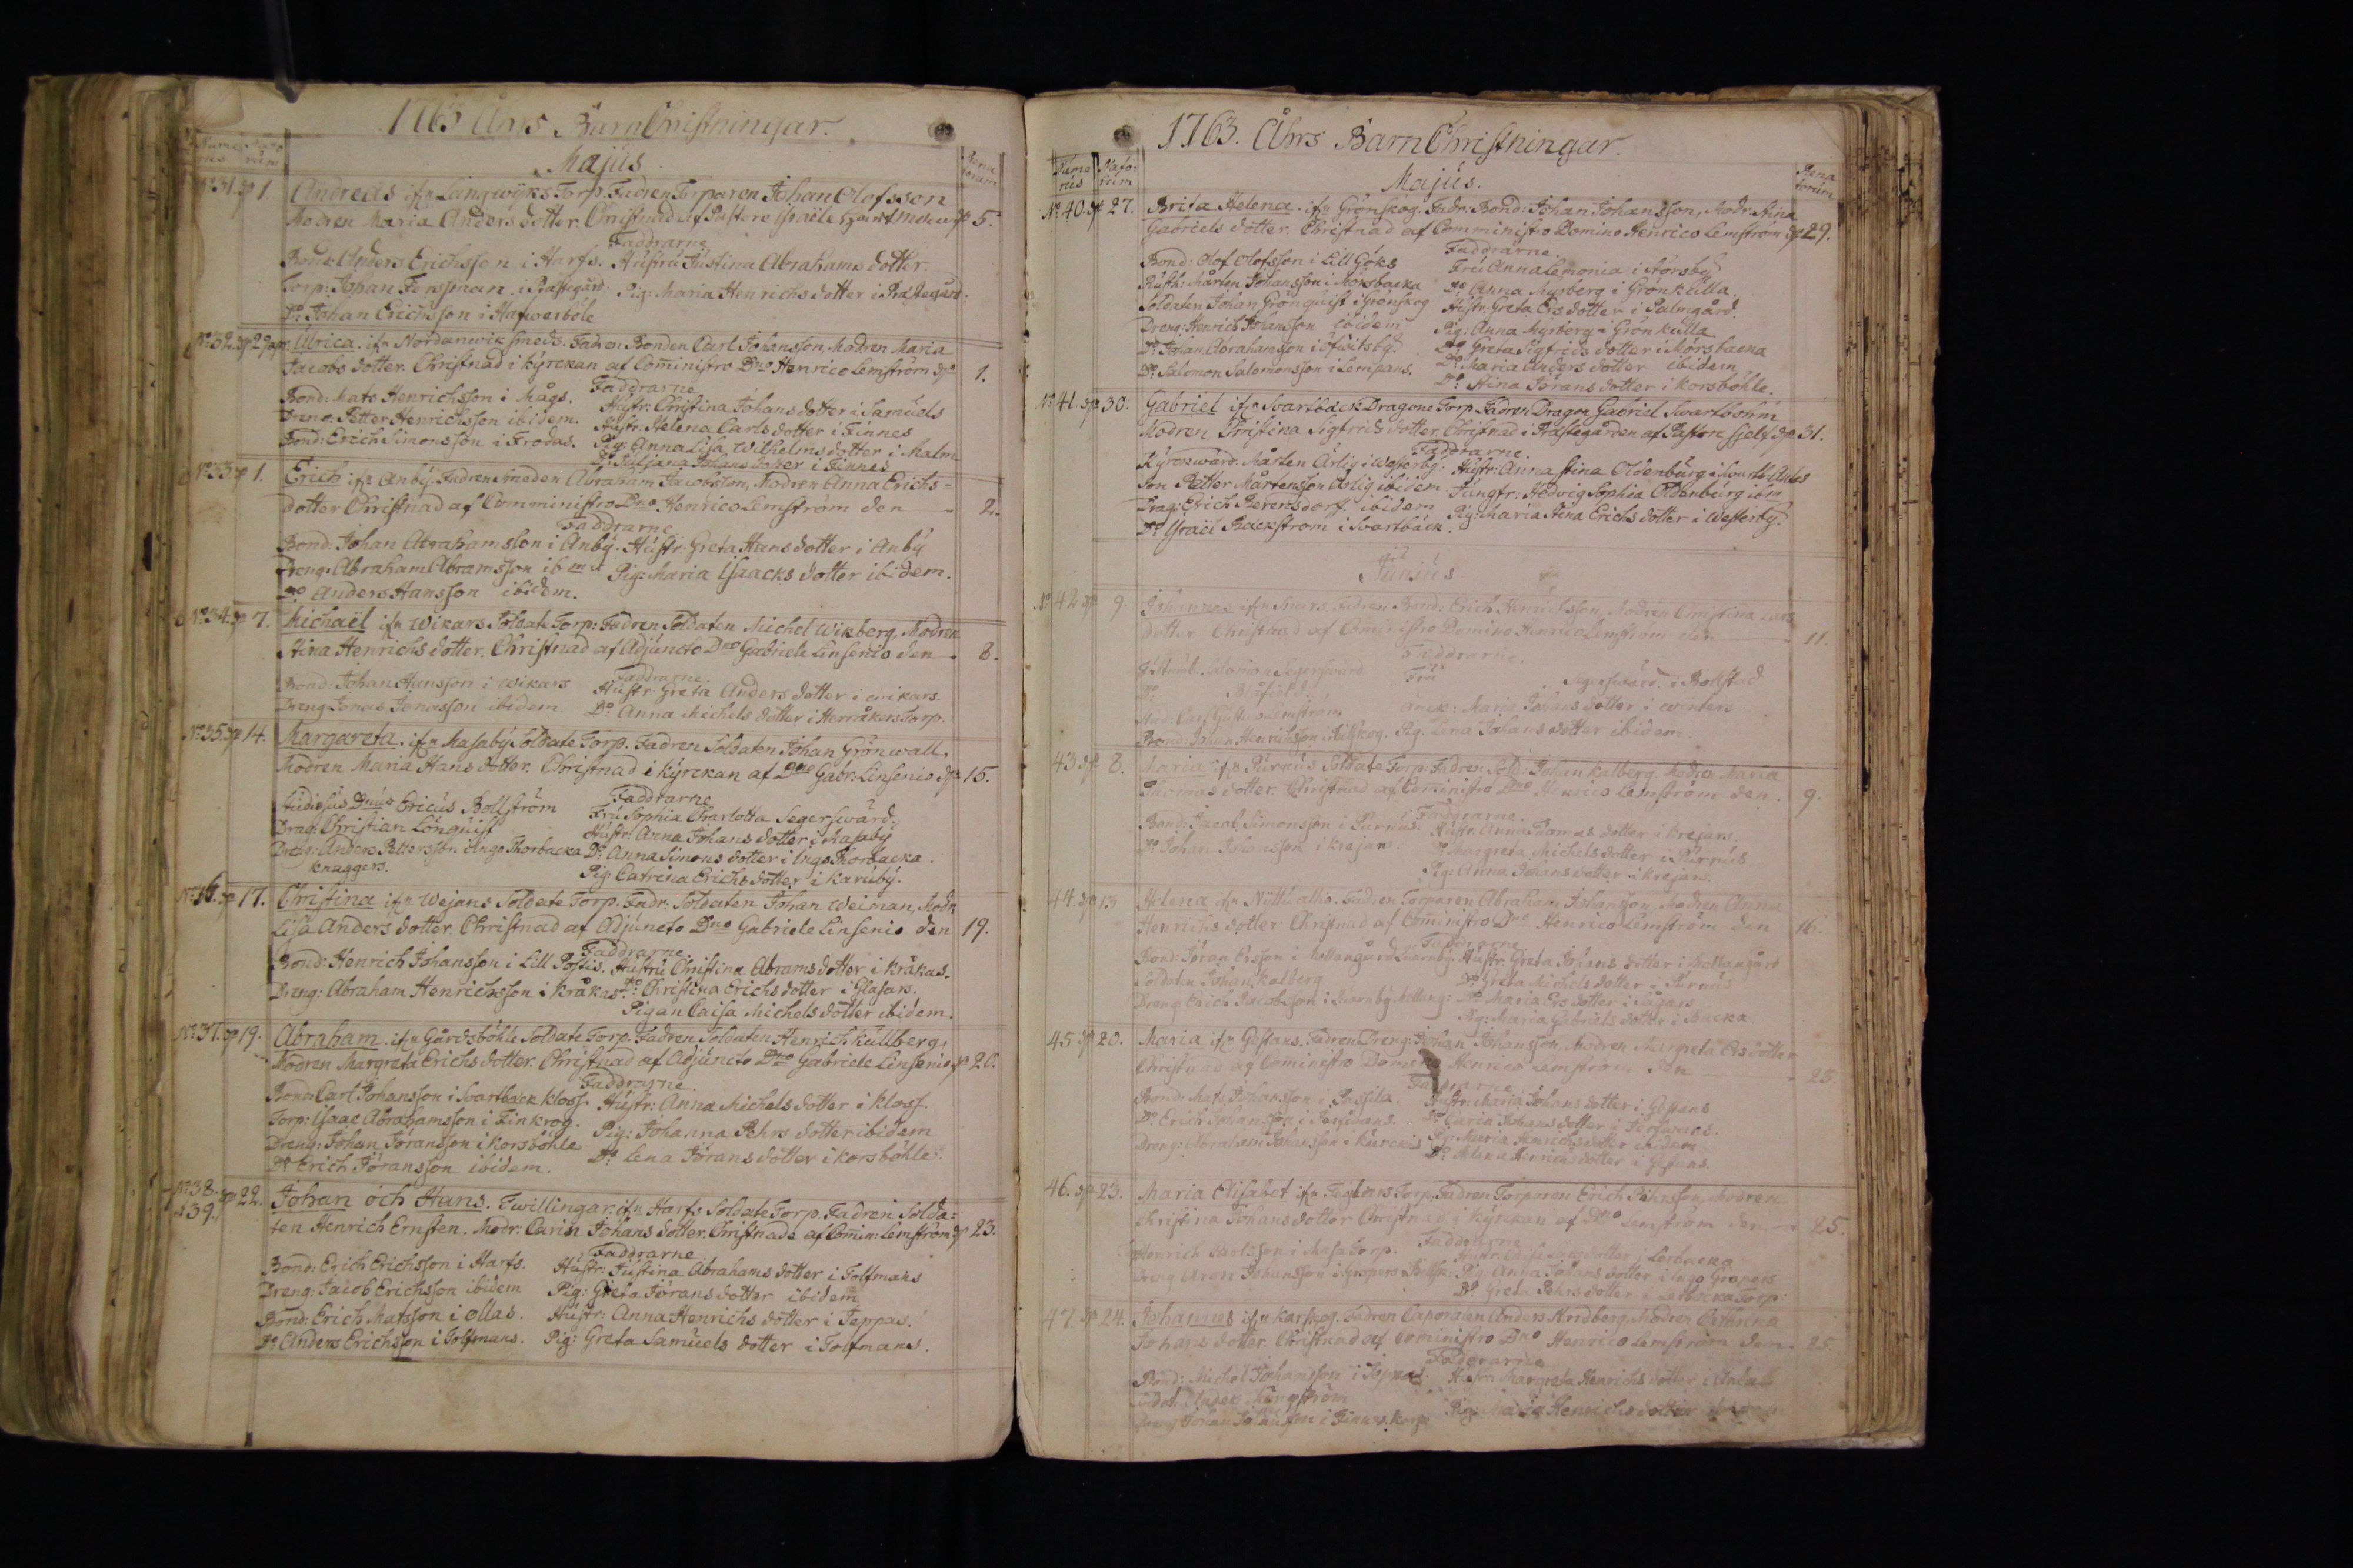 1763 Åhrs Barn Christningar.
Numerus Natorum
Majus
Renatorum
No 31. d. 1. Andreas ifrn Långwijks Torp. Fadren Torparen Johan Olofsson
Modren Maria Anders dotter. Christnad af Pastore Israële d. 5.
Faddrarne
Bond: Anders Erichsson i Harfs. Hustru Justina Abrahams dotter.
Torp: Johan Finsman i Prästegård. Pig: Maria Henrichs dotter i Prästegård.
Do Johan Erichsson i Hafwerböle
No 32. Ulrica. ifrn Nordanwik Smeds. Fadren Bonden Carl Johansson, Modren Maria
Jacobs dotter. Christnad i kyrckan af Coministro Dno Henrico Lemström d. 1.
Faddrarne
Bond: Mats Henrichsson i Mågs. Hustr: Christina Johans dotter i Samuels
Dreng: Petter Henrichsson ibidem. Hustr: Helena Carls dotter i Finnes
Bond: Erich Simonsson i Frodas. Pig: Anna Lisa Wilhelms dotter i Malm
Do Juliana Johans dotter i Finnes
No 33 d. 1. Erich ifrn Anby. Fadren Smeden Abraham Jacobsson, Modren Anna Erichs-
dotter Christnad af Comministro Dno Henrico Lemström den 2.
Faddrarne
Bond: Johan Abrahamsson i Anby. Hustr: Greta Hans dotter i Anby
Dreng: Abraham Abramsson ibm Pig: Maria Isaacks dotter ibidem.
Do Anders Hansson ibidem.
No 34. d. 7. Michaël ifrn Wikars Soldate Torp: Fadren Soldaten Michel Wikberg, Modren
Stina Henrichs dotter. Christnad af Adjuncto Dno Gabriele Linsenio den 8.
Faddrarne
Bond: Johan Hansson i Wikars Hustr: Greta Anders dotter i Wikars.
Dreng Jonas Jonasson ibidem Do Anna Michels dotter i Herråkers Torp.
No 35. d. 14. Margareta. ifrn Masaby Soldate Torp. Fadren Soldaten Johan Grönwall.
Modren Maria Hans dotter. Christnad i kyrckan af Dno Gabr. Linsenio d. 15.
Faddrarne
Studiosus Dnus Ericus Bollström Fru Sophia Charlotta Segerswärd.
Drag: Christian Lönquist Hustr: Anna Johans dotter i Masaby
Dreng: Anders Pettersson i Inge Thorbacka Do Anna Simons dotter i Inge Thorbacka.
knaggers. Pig: Catrina Erichs dotter i Karuby.
No 36. d. 17. Christina ifrn Wejans Soldate Torp. Fadr: Soldaten Johan Weiman, Modr
Lisa Anders dotter. Christnad af Adjuncto Dno Gabriele Linsenio den 19.
Faddrarne
Bond: Henrich Johansson i Lill Postis. Hustru Christina Abrams dotter i Kråkas.
Dreng: Abraham Henrichsson i Kråkas. Do Christina Erichs dotter i Glasars.
Pigan Caisa Michels dotter ibidem.
No 37. d. 19. Abraham. ifrn Gårdsböhle Soldate Torp. Fadren Soldaten Henrich Kullberg,
Modren Margreta Erichs dotter. Christnad af Adjuncto Dno Gabriele Linsenio d. 20.
Faddrarne
Bond: Carl Johansson i Svartback Kloss. Hustr: Anna Michels dotter i Kloss.
Torp: Isaac Abrahamsson i Finkrog. Pig: Johanna Pehrs dotter ibidem
Dreng: Johan Jöransson i Korsböhle Do Lena Jörans dotter i Korsböhle.
Do Erich Jöransson ibidem.
No 38. & 39. d. 22. Johan och Hans. Twillingar ifrn Harfs Soldate Torp. Fadren Solda-
ten Henrich Ernsten. Modr: Carin Johans dotter. Christnade af Comin: Lemström d. 23.
Faddrarne
Bond: Erich Erichsson i Harfs. Hustr: Justina Abrahams dotter i Tolfmans
Dreng: Jacob Erichsson ibidem Pig: Greta Jörans dotter ibidem
Bond: Erich Matsson i Ollas. Hustr: Anna Henrichs dotter i Teppas.
Do Anders Erichsson i Tolfmans. Pig: Greta Samuels dotter i Tolfmans.
1763. Åhrs Barn Christningar.
Numerus Natorum
Majus.
Renatorum
No 40. d. 27. Brita Helena. ifrn Grönskog. Fadr: Bond: Johan Johansson, Modr: Stina
Gabriels dotter. Christnad af Comministro Domino Henrico Lemström d. 29.
Faddrarne.
Bond: Olof Olofsson i Lill Göks Fru Anna Lemonia i Storsby
Rusth: Mårten Johansson i Morsbacka Do Anna Myrberg i Grönkulla.
Soldaten Johan Grönquist i Grönskog Hustr: Greta Ers dotter i Palmgård.
Dreng: Henrich Johansson ibidem Pig: Anna Myrberg i Grönkulla
Do Johan Abrahamsson i Öfwitsby. Do Greta Sigfrids dotter i Morsbacka
Do Salomon Salomonsson i Lempans. Do Maria Anders dotter ibidem
Do Stina Jörans dotter i Korsböhle.
No 41. d. 30. Gabriel ifrn Svartback Dragone Torp. Fadren Dragon Gabriel Swartbohm
Modren Christina Sigfrids dotter, Christnad i Prästegården af Pastore sjelf d. 31.
Faddrarne.
Kyrckwärd. Mårten Ärlig i Westerby. Hustr: Anna Stina Oldenburg i
Son Petter Mårtensson Ärlig ibidem. Jungfr: Hedvig Sophia Oldenburg ibm
Drag: Erich Berentsdorf ibidem Pig: Maria Stina Erichs dotter i Westerby.
Do Israël Backström i Svartbäck.
Junius
No 42 d. 9. Johannes ifrn Snars. Fadren Bond: Erich Henrichsson, Modren Christina Lars
dotter Christnad af Coministro Domino Henrico Lemström den 11.
Faddrarne.
Salomon Segerswärd Fru Segerswärd. i Bollstad
Do Blåfield. Maria Johans dotter i Winters
Stud: Carl Gustav Lemström
Bond: Johan Henrichsson Pig: Lena Johans dotter ibidem.
43 d. 8. Maria ifrn Purnus Soldate Torp. Fadren Sold: Johan Kalberg. Modra Maria
Thomas dotter. Christnad af Coministro Dno Henrico Lemström den. 9.
Faddrarne.
Bond: Jacob Simonsson i Purnus. Hustr: Anna Thomas dotter i Krejars.
Do Johan Johansson i Krejars. Do Margreta Michels dotter i Purnus
Pig: Anna Johans dotter i Krejars.
44. d. 13 Helena ifrn Fadren Torparen Abraham Johansson, Modren Anna
Henrichs dotter Christnad af Coministro Dno Henrico Lemström den 16.
Faddrarne
Bond: Jöran Ersson i Mellangård Hustr: Greta Johans dotter i Mellangård
Soldaten Johan Kalberg Do Greta Michels dotter i Purnus
Dreng Erich Jacobsson i Do Maria Ers dotter i Sågars
Pig: Maria Gabriels dotter i Backa
45. d. 20. Maria ifrn Gästans. Fadren Dreng: Johan Johansson, Modren Margreta Ers dotter
Christnad af Coministro Domino Henrico Lemström den 25.
Faddrarne
Bond: Mats Johansson i Passila. Hustr: Maria Johans dotter i Gästans
Do Erich Johansson i Do Carin Johans dotter i
Dreng: Abraham Johansson i Pig: Maria Henrichs dotter ibidem
Do Helena Henrichs dotter i Gästans.
46. d. 23. Maria Elisabet ifrn Torp, Fadren Torparen Erich Pährsson, Modren
Christina Johans dotter Christnad i kyrckan af Dno Lemström den 25.
Faddrarne
Henrich Carlsson i Masa Torp. Hustr: dotter i Lerbacka
Dreng Aron Johansson i Pig: Anna Johans dotter i Inge Gropers
Do Greta Pehrs dotter i Lerbacka Torp.
47. d. 24. Johannes ifrn Karskog. Fadren Caporalen Anders Nordberg, Modren Cathrina
Johans dotter. Christnad af Coministro Dno Henrico Lemström den 25.
Faddrarne
Bond: Michel Johansson i Hustr: Margreta Henrichs dotter i
Soldat Anders
Dreng Johan Johansson i Finnas. Pig: Maria Henrichs dotter